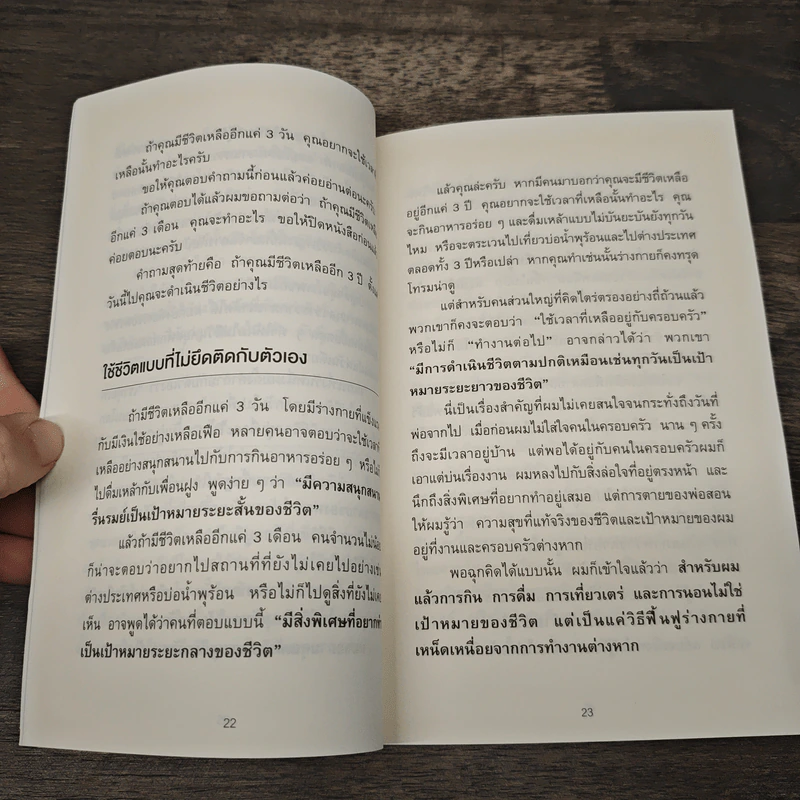 ถ้าคุณมีชีวิตเหลืออีกแค่ 3 วัน คุณอยากจะใช้เวลา
เหลือนั้นทำอะไรครับ
ขอให้คุณตอบคำถามนี้ก่อนแล้วค่อยอ่านต่อนะครับ
ถ้าคุณตอบได้แล้วผมขอถามต่อว่า ถ้าคุณมีชีวิตเหลือ
อีกแค่ 3 เดือน คุณจะทำอะไร ขอให้ปิดหนังสือก่อนแล้ว
ค่อยตอบนะครับ
คำถามสุดท้ายคือ ถ้าคุณมีชีวิตเหลืออีก 3 ปี ตั้งแต่
วันนี้ไปคุณจะดำเนินชีวิตอย่างไร
ใช้ชีวิตแบบที่ไม่ยึดติดกับตัวเอง
ถ้ามีชีวิตเหลืออีกแค่ 3 วัน โดยมีร่างกายที่แข็งแรง
กับมีเงินใช้อย่างเหลือเฟือ หลายคนอาจตอบว่าจะใช้เวลาที่
เหลืออย่างสนุกสนานไปกับการกินอาหารอร่อย ๆ หรือไม่ก็
ไปดื่มเหล้ากับเพื่อนฝูง พูดง่าย ๆ ว่า “มีความสนุกสนาน
รื่นรมย์เป็นเป้าหมายระยะสั้นของชีวิต”
แล้วถ้ามีชีวิตเหลืออีกแค่ 3 เดือน คนจำนวนไม่น้อย
ก็น่าจะตอบว่าอยากไปสถานที่ที่ยังไม่เคยไปอย่างเช่น
ต่างประเทศหรือบ่อน้ำพุร้อน หรือไม่ก็ไปดูสิ่งที่ยังไม่เคย
เห็น อาจพูดได้ว่าคนที่ตอบแบบนี้ “มีสิ่งพิเศษที่อยากทำ
เป็นเป้าหมายระยะกลางของชีวิต”
22
แล้วคุณล่ะครับ หากมีคนมาบอกว่าคุณจะมีชีวิตเหลือ
อยู่อีกแค่ 3 ปี คุณอยากจะใช้เวลาที่เหลือนั้นทำอะไร คุณ
จะกินอาหารอร่อย ๆ และดื่มเหล้าแบบไม่บันยะบันยังทุกวัน
ไหม หรือจะตระเวนไปเที่ยวบ่อน้ำพุร้อนและไปต่างประเทศ
ตลอดทั้ง 3 ปีหรือเปล่า หากคุณทำเช่นนั้นร่างกายก็คงทรุด
โทรมน่าดู
แต่สำหรับคนส่วนใหญ่ที่คิดไตร่ตรองอย่างถี่ถ้วนแล้ว
พวกเขาก็คงจะตอบว่า “ใช้เวลาที่เหลืออยู่กับครอบครัว”
หรือไม่ก็ “ทำงานต่อไป” อาจกล่าวได้ว่า พวกเขา
“มีการดำเนินชีวิตตามปกติเหมือนเช่นทุกวันเป็นเป้า
หมายระยะยาวของชีวิต”
นี่เป็นเรื่องสำคัญที่ผมไม่เคยสนใจจนกระทั่งถึงวันที่
พ่อจากไป เมื่อก่อนผมไม่ใส่ใจคนในครอบครัว นาน ๆ ครั้ง
ถึงจะมีเวลาอยู่บ้าน แต่พอได้อยู่กับคนในครอบครัวผมก็
เอาแต่บ่นเรื่องงาน ผมหลงไปกับสิ่งล่อใจที่อยู่ตรงหน้า และ
นึกถึงสิ่งพิเศษที่อยากทำอยู่เสมอ แต่การตายของพ่อสอน
ให้ผมรู้ว่า ความสุขที่แท้จริงของชีวิตและเป้าหมายของผม
อยู่ที่งานและครอบครัวต่างหาก
พอฉุกคิดได้แบบนั้น ผมก็เข้าใจแล้วว่า สำหรับผม
แล้วการกิน การดื่ม การเที่ยวเตร่ และการนอนไม่ใช่
เป้าหมายของชีวิต แต่เป็นแค่วิธีฟื้นฟูร่างกายที่
เหน็ดเหนื่อยจากการทำงานต่างหาก
23